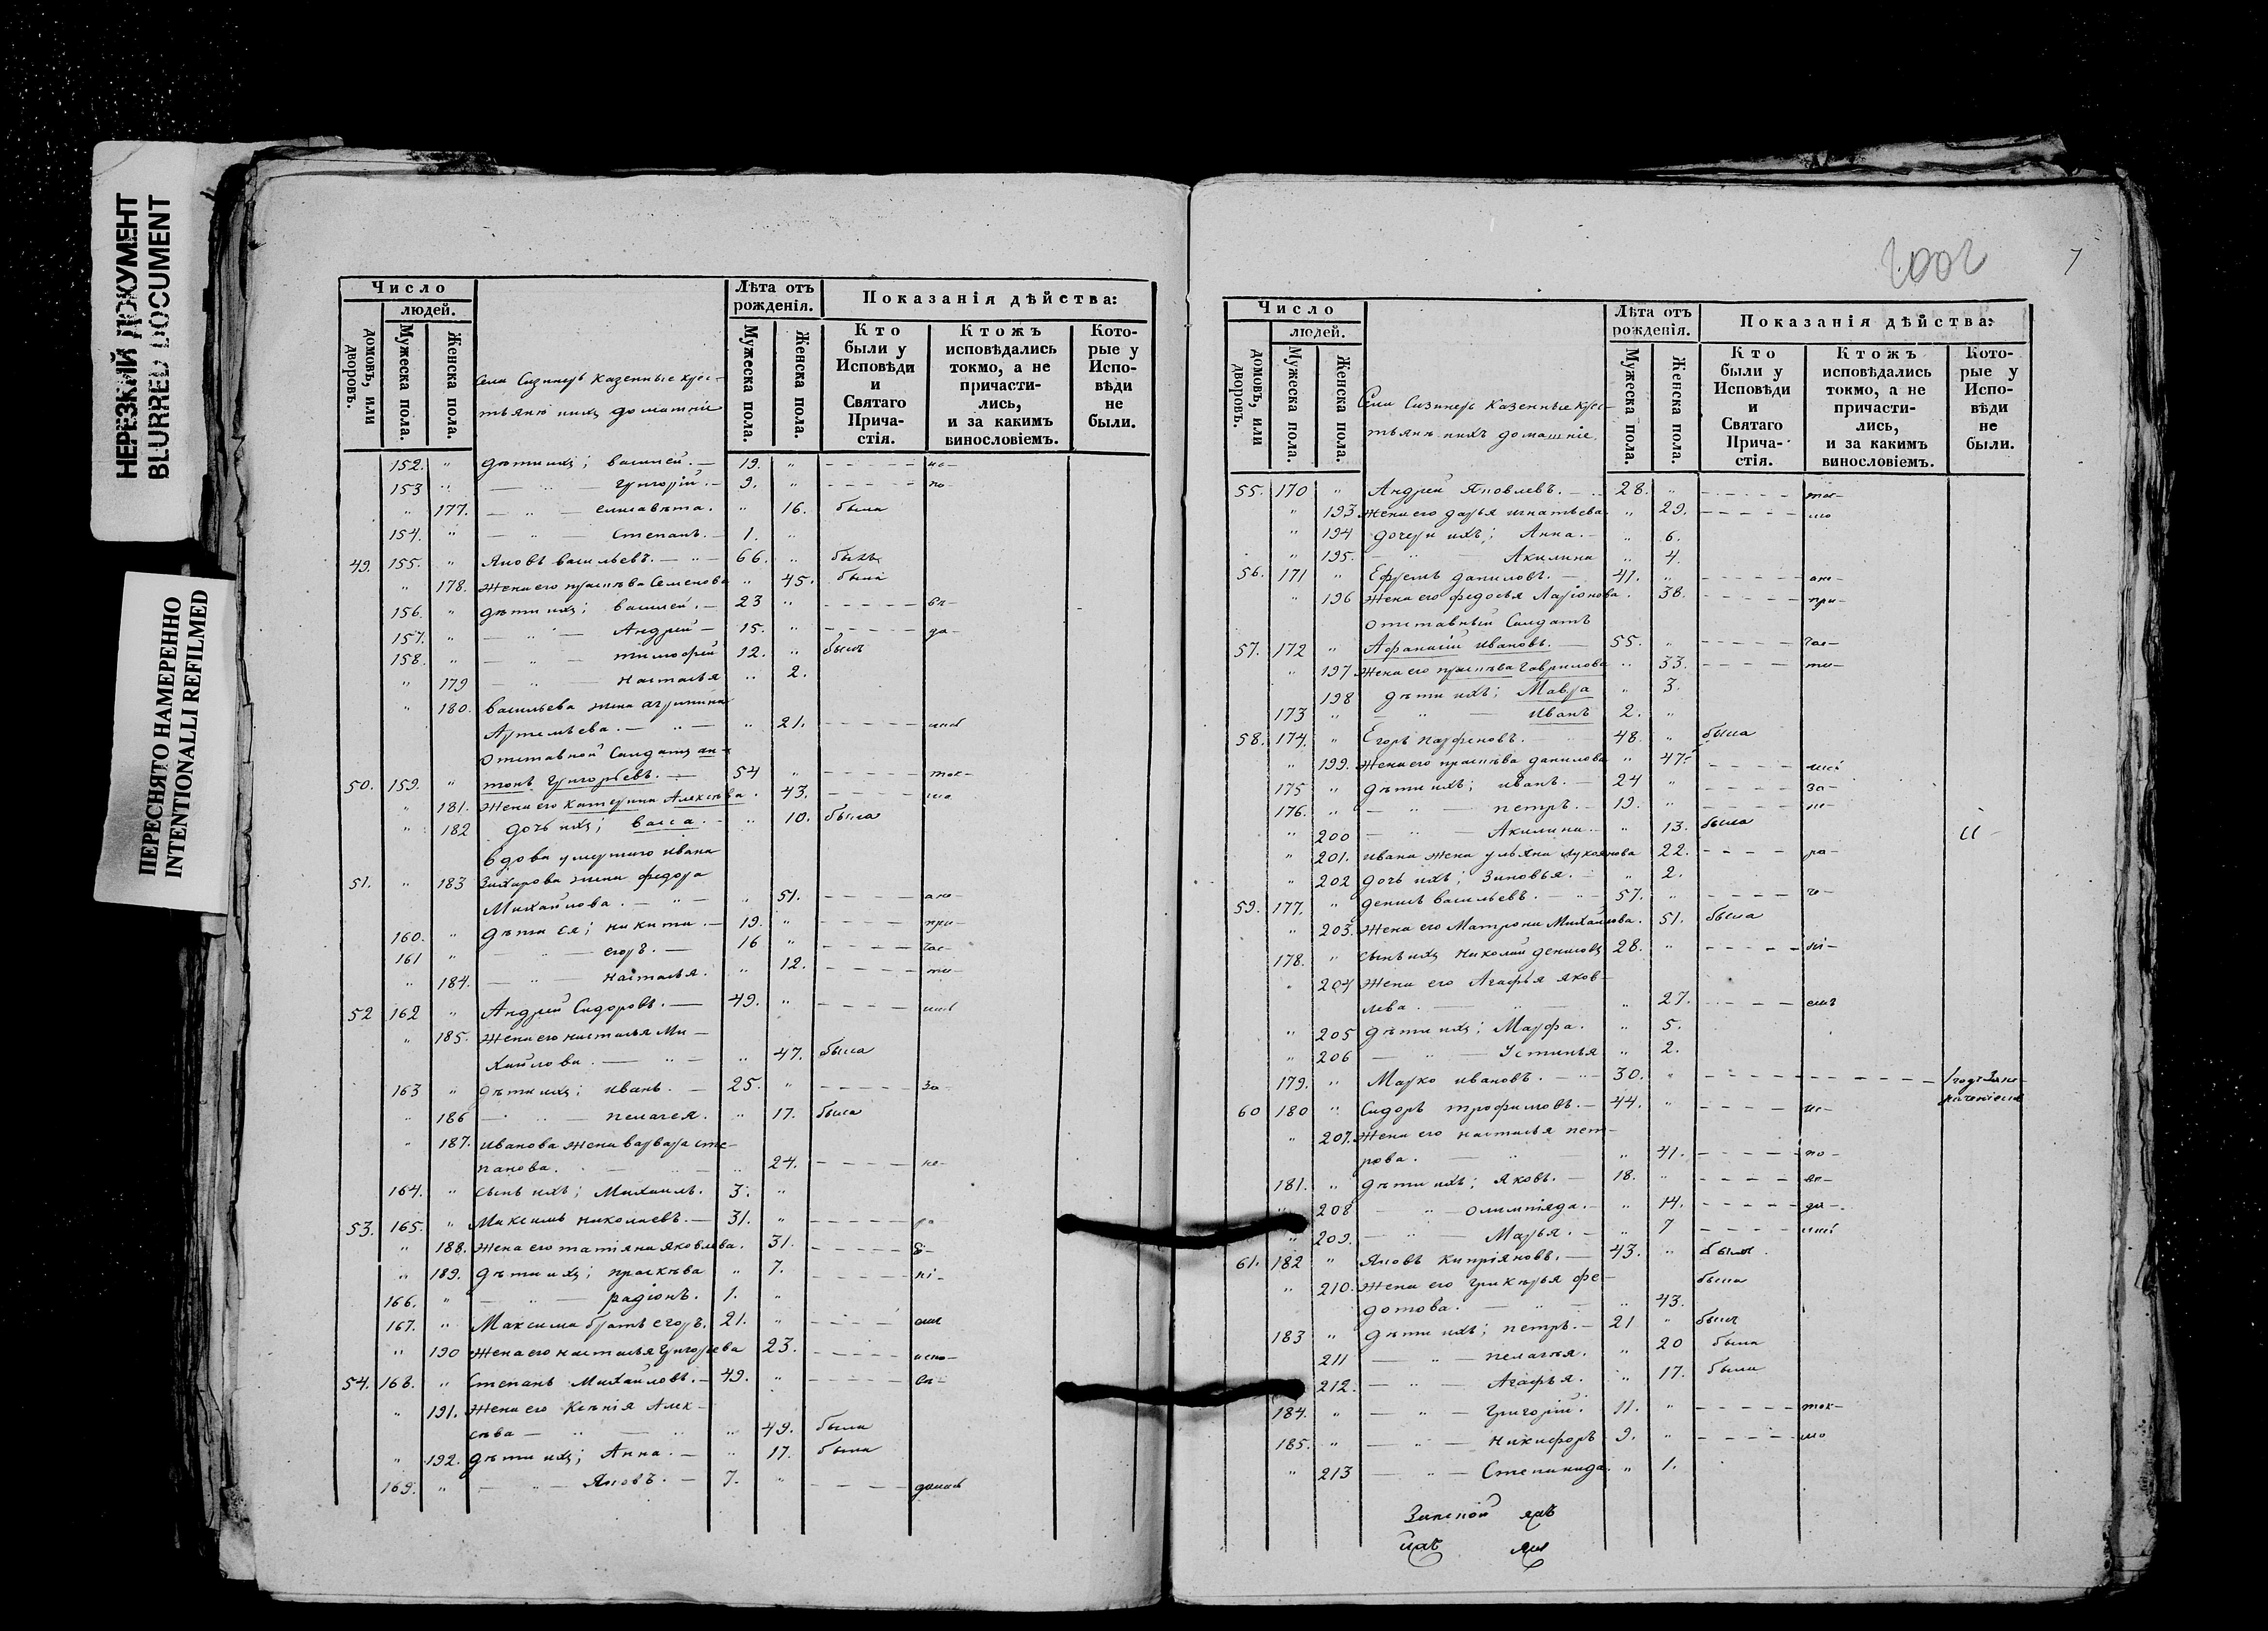 НЕРЕЗКИЙ ДОКУМЕНТ
BLURRED DOCUMENT
ПЕРЕСНЯТО НАМЕРЕННО
INTENTIONALLI REFILMED
Число
людей.
домовъ, или дворовъ.
Мужеска пола.
Женска пола.
Села Сизинеръ Казенные крес-
тьяне и ихъ домашніе
Лѣта отъ рожденія.
Мужеска пола.
Женска пола.
Показанія дѣйства:
Кто были у Исповѣди и Святаго Прича-стія.
Ктожъ исповѣдались токмо, а не причасти-лись, и за какимъ винословіемъ.
Кото-рые у Испо-вѣди не были.
152. " дѣти ихъ; василей. — 19. "
153 " — " — григорій. — 9. " по-
" 177. — " — елисавета. " 16. была
154. " — " — Степанъ. — 1. "
49. 155. " Яковъ васильевъ. — " — 66. " былъ
" 178. Жена его праскѣва Семенова " 45. была
156. " дѣти ихъ; василей. — 23 " вѣ-
157. " — " — Андрей — 15. " да-
158. " — " — тимофей 12. " былъ
" 179 — " — настасья " 2.
" 180. васильева жена агрипина
Артемьева. — " — " 21.
Отставной Солдатъ ан-
50. 159. " тонъ григорьевъ. — 54 " ток-
" 181. Жена его катерина Алексѣва. 43. мо
" 182 дочь ихъ; васса. — " 10. была
вдова умершаго ивана
51. " 183 Захарова жена федора
Михайлова. — " — " 51.
160. " дѣти ея; никита. — 19. " при-
161 " — " — егоръ. — 16 " час-
" 184. — " — настасья. " 12. ти-
52 162 " Андрей Сидоровъ. — 49. "
" 185. Жена его настасья Ми-
хайлова. — " — " 47. была
163 " дѣти ихъ; иванъ. — 25. " за-
" 186 — " — пелагея. " 17. была
" 187. иванова жена варвара сте-
панова. — " — " 24. не-
164. " сынъ ихъ; Михаилъ. 3. "
53. 165. " Максимъ николаевъ. — 31. " ра-
" 188. Жена его татіяна яковлева. 31.
" 189. дѣти ихъ; праскѣва " 7. ні-
166. " — " — радіонъ. 1. "
167. " Максима братъ егоръ. 21. " емъ
" 190 Жена его настасья григорьева 23. испо-
54. 168. " Степанъ Михайловъ. — 49. " вѣ-
" 191. Жена его Ксѣнія Алек-
сѣва — " — " 49. была
" 192. дѣти ихъ; Анна. — " 17. была
169. " — " — Яковъ. — 7. "
2002
7
Число
людей.
домовъ, или дворовъ.
Мужеска пола.
Женска пола.
Села Сизинеръ Казенные крес-
тьяне и ихъ домашніе.
Лѣта отъ рожденія.
Мужеска пола.
Женска пола.
Показанія дѣйства:
Кто были у Исповѣди и Святаго Прича-стія.
Ктожъ исповѣдались токмо, а не причасти-лись, и за какимъ винословіемъ.
Кото-рые у Испо-вѣди не были.
55. 170 " Андрей Яковлевъ. — 28. " ток-
" 193 Жена его дарья игнатьева. " 29. мо
" 194 дочери ихъ; Анна. — " 6.
" 195. — Акилина " 4.
56. 171 " Ефремъ даниловъ. — 41. "
" 196 Жена его федосья Ларіонова. 38. при-
Отставный Солдатъ
57. 172 " Афанасій ивановъ. — 55. " час-
" 197 Жена его праскѣва гаврилова " 33. ти-
198 дѣти ихъ; Мавра " 3.
173 " — " — иванъ 2. "
58. 174. " Егоръ парфеновъ. 48. " была
" 199. Жена его праскѣва данилова " 47.
175 " дѣти ихъ; иванъ. — 24 " за-
176. " — " — петръ. — 19. " не-
" 200 — " — Акилина. — " 13. была
" 201. ивана жена ульяна лукоянова 22. ра-
" 202 дочь ихъ; Зиновья. — " 2.
59. 177. " денисъ васильевъ. — " — 57. "
" 203. Жена его Матрона Михайлова. 51. была
178. " сынъ ихъ николай денисовъ 28. " ні-
" 204 Жена его Агафья яков-
лева. — " 27. емъ
" 205 дѣти ихъ; Марфа. " 5.
" 206 — " — Устинья " 2.
179. " Марко ивановъ. — " — 30. "
60 180 " Сидоръ трофимовъ. — 44. " ис-
" 207. Жена его настасья пет-
рова. — " 41. по-
181. " дѣти ихъ; яковъ. — 18. " вѣ-
" 208 — " — олимпіяда. — " 14. да-
" 209. — " — Марья. — " 7
61. 182 " Яковъ Кипріяновъ. — 43. " былъ.
" 210. Жена его гликерья фе- была
дотова. — " — " 43.
183 " дѣти ихъ; петръ. — 21 " былъ
211 — " — пелагея. " 20 была
212. — " — Агафья. " 17. была
184. " — " — григорій. 11. " ток-
185. " — " — никифоръ 9. " мо
" 213 — " — Степанида. " 1.